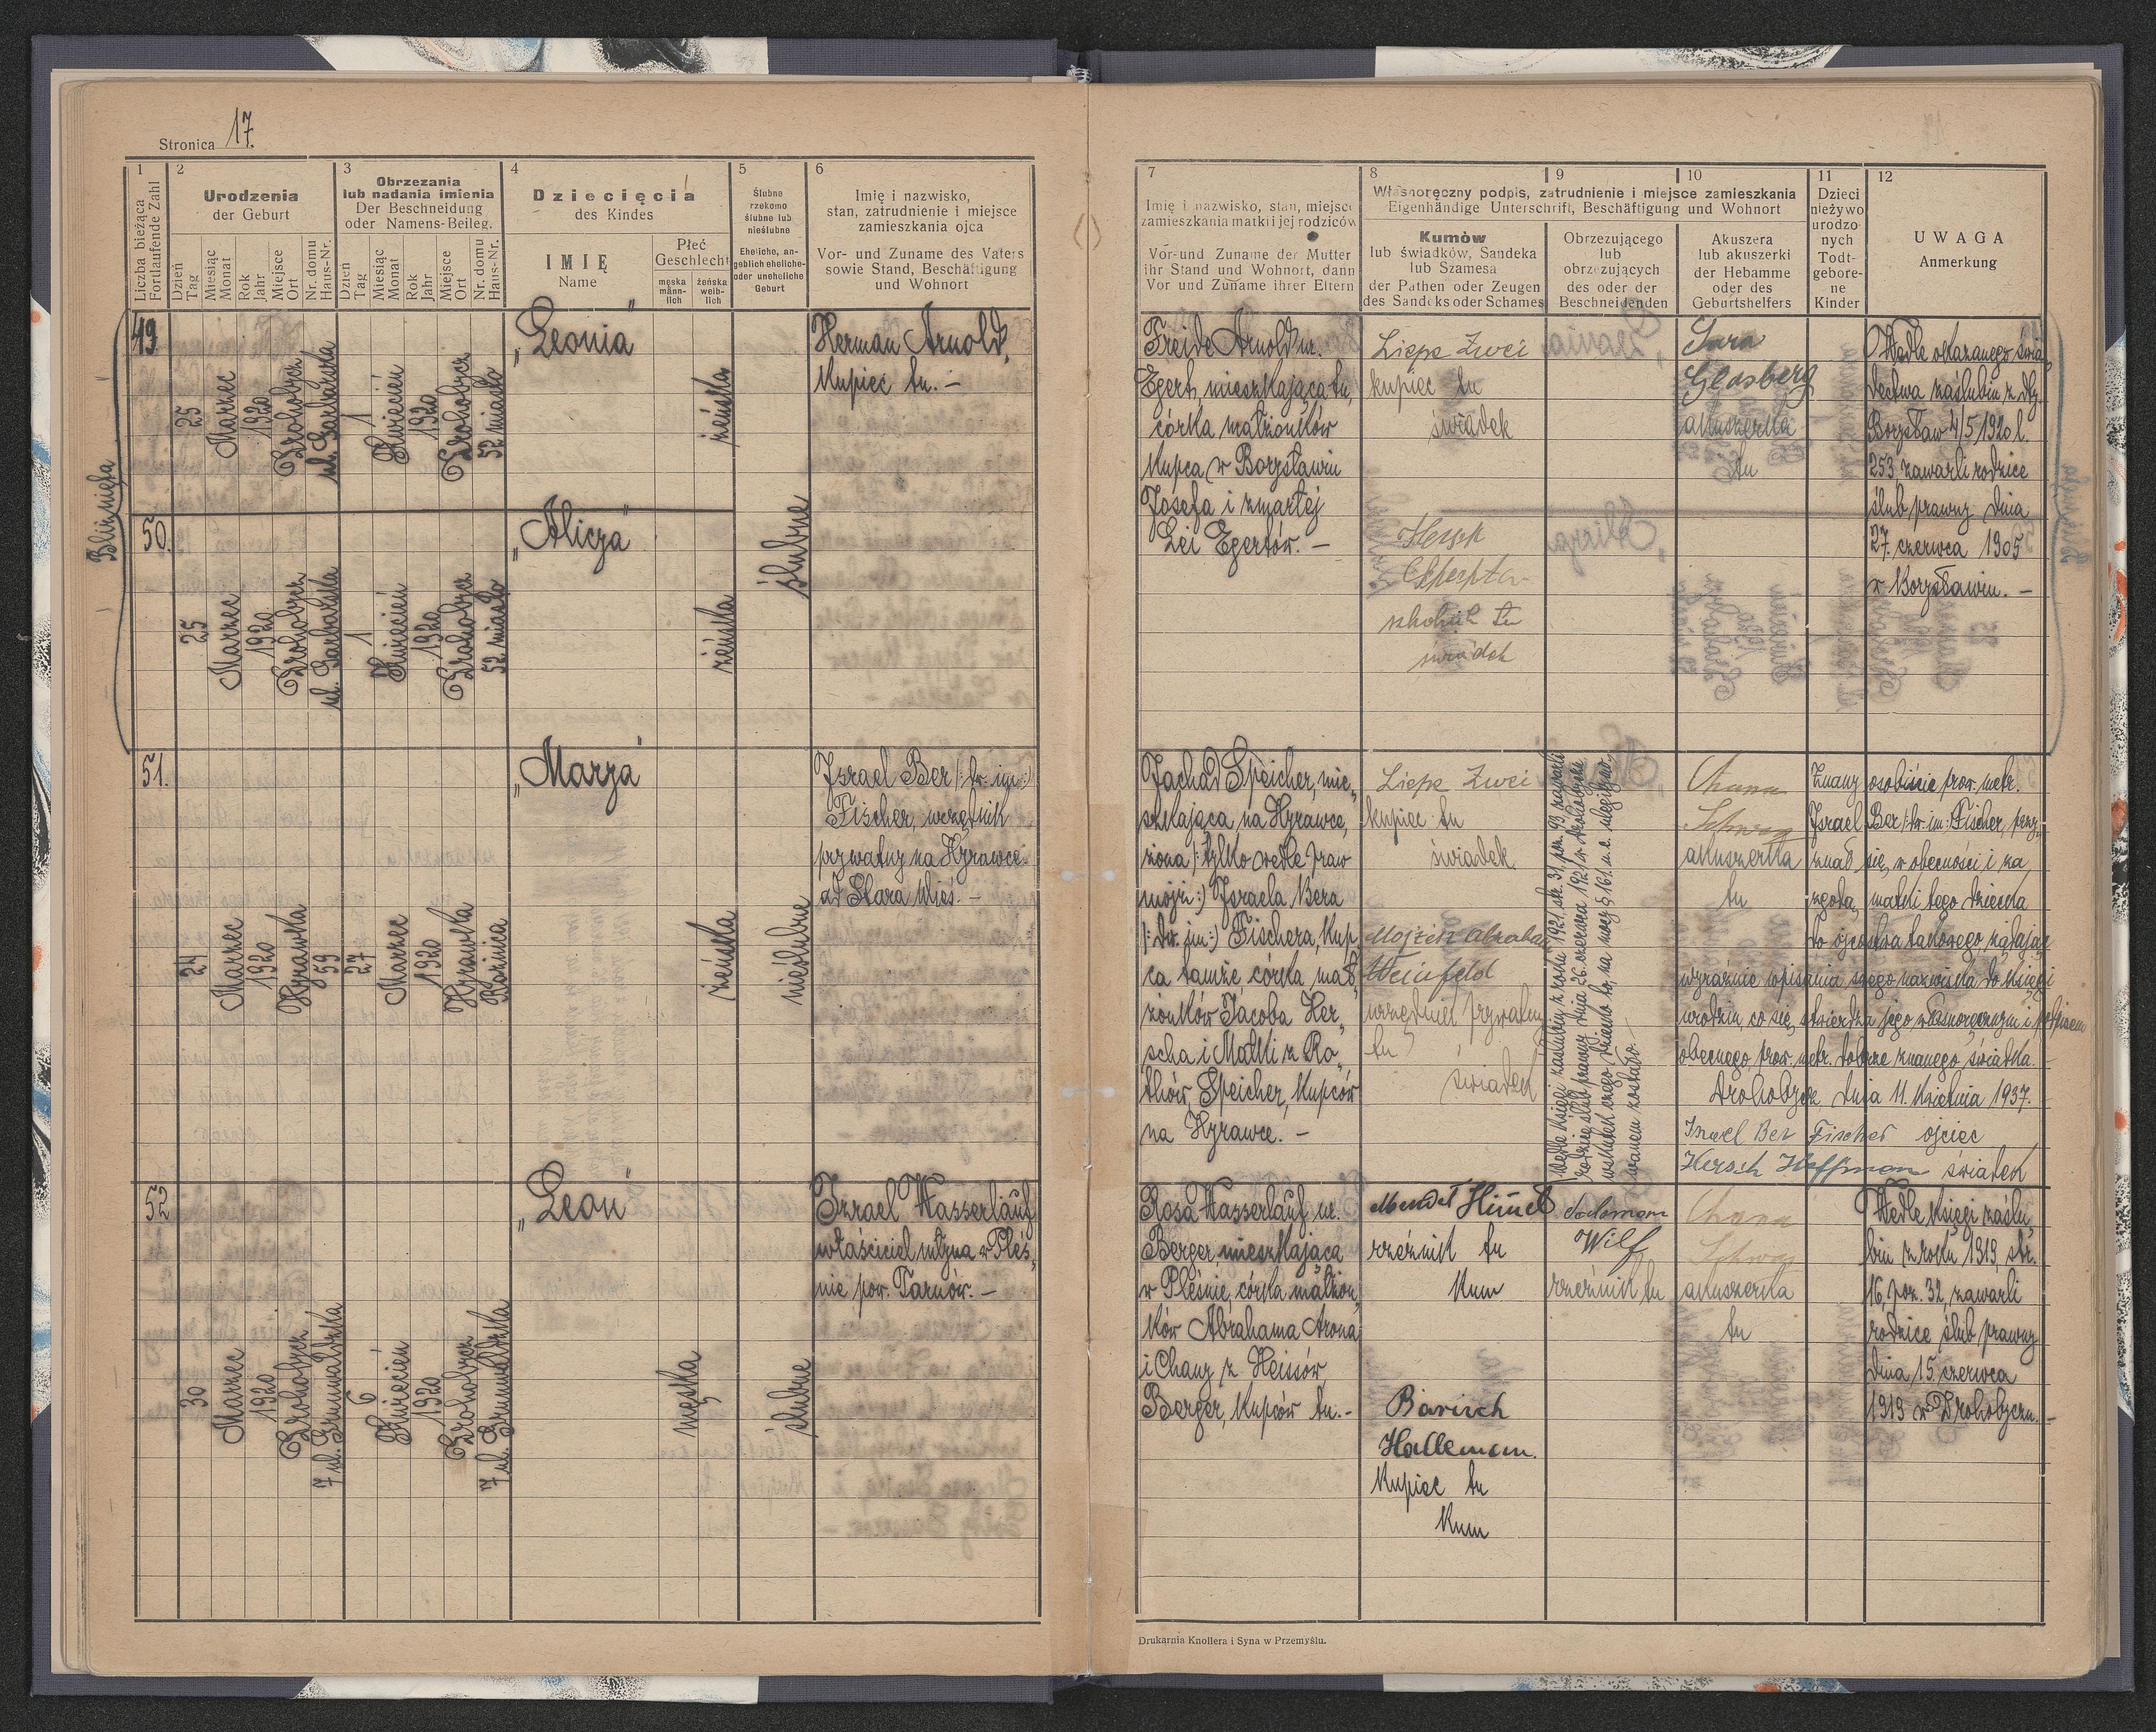 Stronica 17.
1
Liczba bieżąca
Fortlaufende Zahl
2
Urodzenia
der Geburt
Dzień
Tag
Miesiąc
Monat
Rok
Jahr
Miejsce
Ort
Nr. domu
Haus-Nr.
3
Obrzezania
lub nadania imienia
Der Beschneidung
oder Namens-Beileg.
Dzień
Tag
Miesiąc
Monat
Rok
Jahr
Miejsce
Ort
Nr. domu
Haus-Nr.
4
Dziecięcia
des Kindes
IMIĘ
Name
Płeć
Geschlecht
męska
männ-
lich
żeńska
weib-
lich
5
Ślubne
rzekomo
ślubne lub
nieślubne
Eheliche, an-
geblich eheliche-
oder uneheliche
Geburt
6
Imię i nazwisko,
stan, zatrudnienie i miejsce
zamieszkania ojca
Vor- und Zuname des Vaters
sowie Stand, Beschäftigung
und Wohnort
7
Imię i nazwisko, stan, miejsce
zamieszkania matki i jej rodziców
Vor-und Zuname der Mutter
ihr Stand und Wohnort, dann
Vor und Zuname ihrer Eltern
8
9
10
Własnoręczny podpis, zatrudnienie i miejsce zamieszkania
Eigenhändige Unterschrift, Beschäftigung und Wohnort
Kumów
lub świadków, Sandeka
lub Szamesa
der Pathen oder Zeugen
des Sandeks oder Schames
Obrzezującego
lub
obrzezujących
des oder der
Beschneidenden
Akuszera
lub akuszerki
der Hebamme
oder des
Geburtshelfers
11
Dzieci
nieżywo
urodzo
nych
Todt-
gebore-
ne
Kinder
12
UWAGA
Anmerkung
Bliźnięta
49.
25
Marzec
1920
Drohobycz
ul. Garbarska
1
Kwiecień
1920
Drohobycz
52 miasto
"Leonia"
żeńska
ślubne
Herman Arnold,
kupiec tu. -
Freide Arnold ur.
Egert, mieszkająca tu,
córka małżonków
kupca w Borysławiu
Josefa i zmarłej
Lei Egertów. -
Liepe Zwei
kupiec tu
świadek
Sara
Glasberg
akuszerka
tu
Wedle okazanego świa-
dectwa zaślubin z dtg.
Borysław 4/5 1920 l.
253, zawarli rodzice
ślub prawny dnia
27. czerwca 1905
w Borysławiu. -
50.
25
Marzec
1920
Drohobycz
ul. Garbarska
1
Kwiecień
1920
Drohobycz
52 miasto
"Alicja"
żeńska
Hersch
szkolnik tu
świadek
51.
24
Marzec
1920
Hyrawka
59
27
Marzec
1920
Hyrawka
"Marja"
żeńska
nieślubne
Israel Ber /: dw. im :/
Fischer, urzędnik
prywatny na Hyrawce
ad Stara Wieś. -
Jachad Speicher, mie-
szkająca na Hyrawce,
żona /: tylko wedle praw
mojż :/ Israela Bera
/: dw. im :/ Fischera, kup-
ca tamże, córka mał-
żonków Jacoba Her-
scha i Malki z Ro-
thów, Speicher, kupców
na Hyrawce. -
Liepe Zwei
kupiec tu
świadek
Mojżesz Abraham
Weinfeld
urzędnik prywatny
tu
świadek
Wedle księgi zaślubin z roku 1921. str. 31, poz. 93, zawarli
rodzice ślub prawny dnia 26. czerwca 1921 w Drohobyczu
wskutek czego dziecko to, na mocy § 161. u.c. ulegitymo-
wanem zostało. -
Chana
Schwarz
akuszerka
tu
Znany osobiście prow. metr.
Israel Ber /: dw. im :/ Fischer, przy-
znał się, w obecności i za
zgodą matki tego dziecka
do ojcostwa takowego, żądając
wyraźnie wpisania swego nazwiska do księgi
urodzin, co się stwierdza jego własnoręcznym i podpisem
obecnego, prow. metr. dobrze znanego, świadka. -
Drohobycz dnia 11. kwietnia 1937. -
Israel Ber Fischer ojciec
Hersch Hoffman świadek
52
30
Marzec
1920
Drohobycz
7 ul. Grunwaldzka
6
Kwiecień
1920
Drohobycz
7 ul. Grunwaldzka
"Leon"
męska
ślubne
Izrael Wasserlauf
właściciel młyna w Pleś-
nie pow. Tarnów. -
Rosa Wasserlauf ur.
Berger, mieszkająca
w Pleśnie, córka małżon-
ków Abrahama Arona
i Chany z Heissów,
Berger, kupców tu. -
Mendel Himel
rzeźnik tu
kum
Barisch
Halleman.
kupiec tu
kum
Salomon
Wilf
rzeźnik tu
Chana
Schwarz
akuszerka
tu
Wedle księgi zaślu-
bin z roku 1919, str.
16, poz. 32, zawarli
rodzice ślub prawny
dnia 15. czerwca
1919 w Drohobyczu. -
Drukarnia Knollera i Syna w Przemyślu.